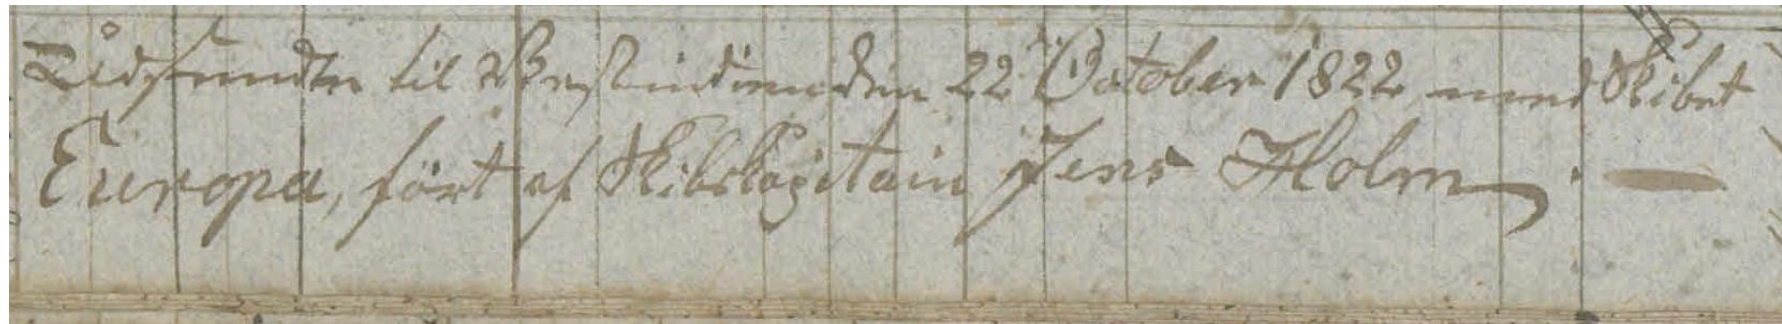 Udsendte til Vestindien den 22 October 1822 med Skibet
Europa, ført af Skibskapitain Jens Holm. —